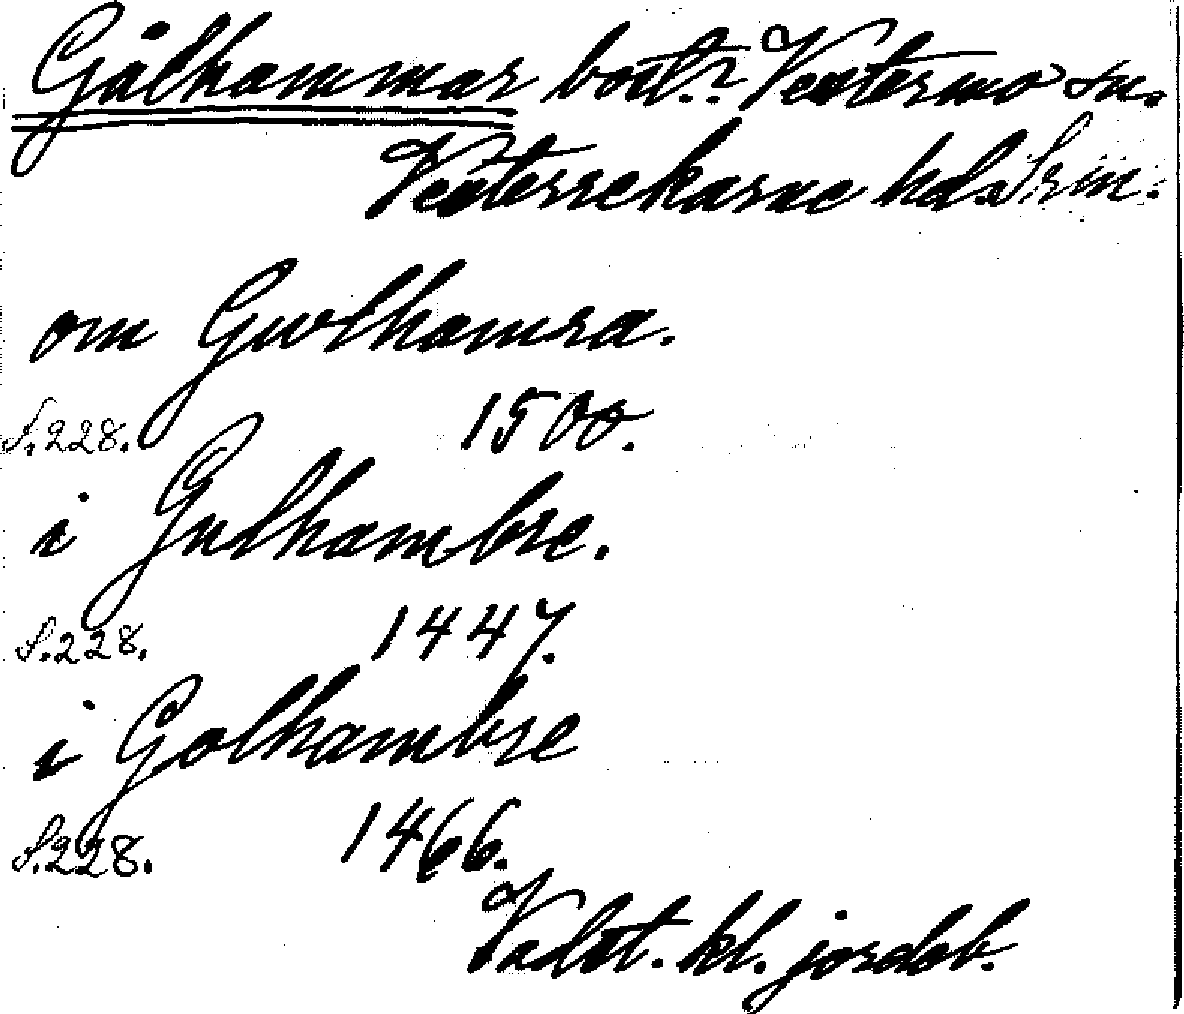 Gålhammar bost.? Västermo sn.
Västerrekarne hd. Srm.
om Gwlhamra.
S.228. 1500.
i Gulhambre.
S.228. 1447.
i Golhambre
S.228. 1466.
Vadst. kl. jordeb.